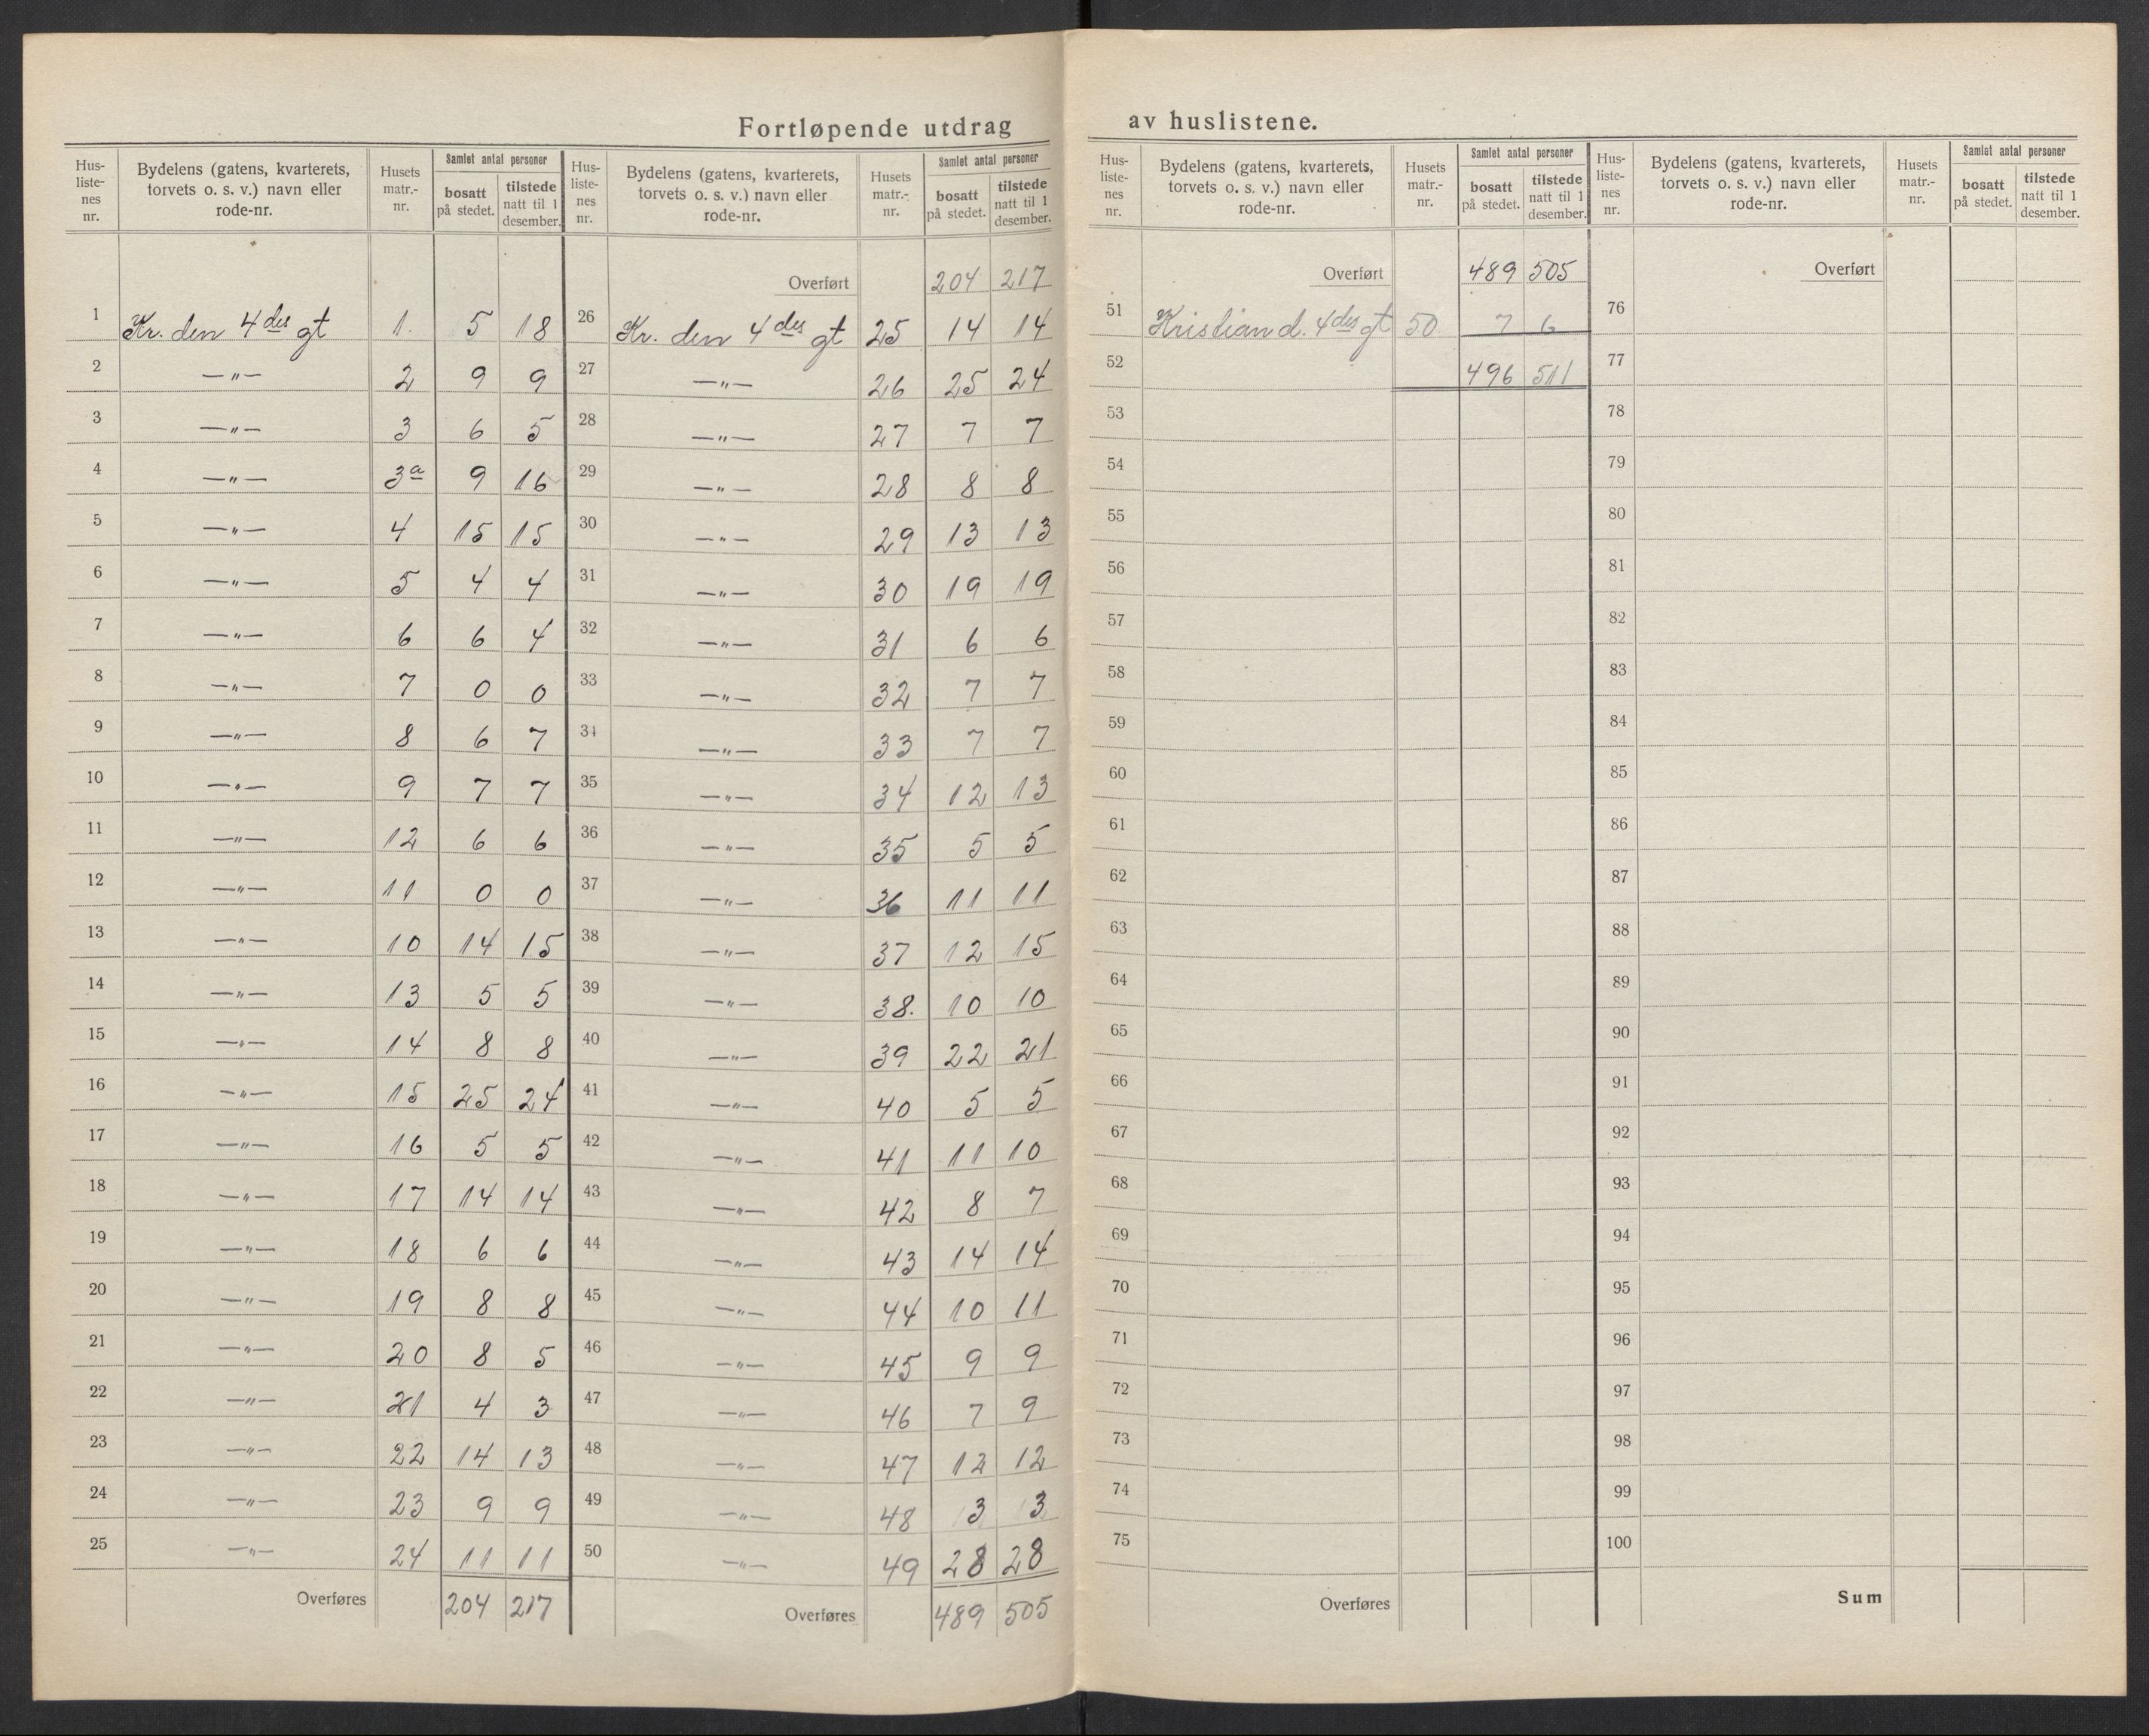 Fortløpende utdrag av huslistene.
Hus-listenes nr. Bydelens (gatens, kvarterets, torvets o. s. v.) navn eller rode-nr. Husets matr.-nr. Samlet antal personer bosatt på stedet. tilstede natt til 1 desember.
1 Kr. den 4des gt 1. 5 18
2 —"— 2 9 9
3 —"— 3 6 5
4 —"— 3a 9 16
5 —"— 4 15 15
6 —"— 5 4 4
7 —"— 6 6 4
8 —"— 7 0 0
9 —"— 8 6 7
10 —"— 9 7 7
11 —"— 12 6 6
12 —"— 11 0 0
13 —"— 10 14 15
14 —"— 13 5 5
15 —"— 14 8 8
16 —"— 15 25 24
17 —"— 16 5 5
18 —"— 17 14 14
19 —"— 18 6 6
20 —"— 19 8 8
21 —"— 20 8 5
22 —"— 21 4 3
23 —"— 22 14 13
24 —"— 23 9 9
25 —"— 24 11 11
Overføres 204 217
Hus-listenes nr. Bydelens (gatens, kvarterets, torvets o. s. v.) navn eller rode-nr. Husets matr.-nr. Samlet antal personer bosatt på stedet. tilstede natt til 1 desember.
Overført 204 217
26 Kr. den 4des gt 25 14 14
27 —"— 26 25 24
28 —"— 27 7 7
29 —"— 28 8 8
30 —"— 29 13 13
31 —"— 30 19 19
32 —"— 31 6 6
33 —"— 32 7 7
34 —"— 33 7 7
35 —"— 34 12 13
36 —"— 35 5 5
37 —"— 36 11 11
38 —"— 37 12 15
39 —"— 38. 10 10
40 —"— 39 22 21
41 —"— 40 5 5
42 —"— 41 11 10
43 —"— 42 8 7
44 —"— 43 14 14
45 —"— 44 10 11
46 —"— 45 9 9
47 —"— 46 7 9
48 —"— 47 12 12
49 —"— 48 3 3
50 —"— 49 28 28
Overføres 489 505
Hus-liste-nes nr. Bydelens (gatens, kvarterets, torvets o. s. v.) navn eller rode-nr. Husets matr.-nr. Samlet antal personer bosatt på stedet. tilstede natt til 1 desember.
Overført 489 505
51 Kristian d. 4des gt 50 7 6
52 496 511
53
54
55
56
57
58
59
60
61
62
63
64
65
66
67
68
69
70
71
72
73
74
75
Overføres
Hus-liste-nes nr. Bydelens (gatens, kvarterets, torvets o. s. v.) navn eller rode-nr. Husets matr.-nr. Samlet antal personer bosatt på stedet. tilstede natt til 1 desember.
Overført
76
77
78
79
80
81
82
83
84
85
86
87
88
89
90
91
92
93
94
95
96
97
98
99
100
Sum